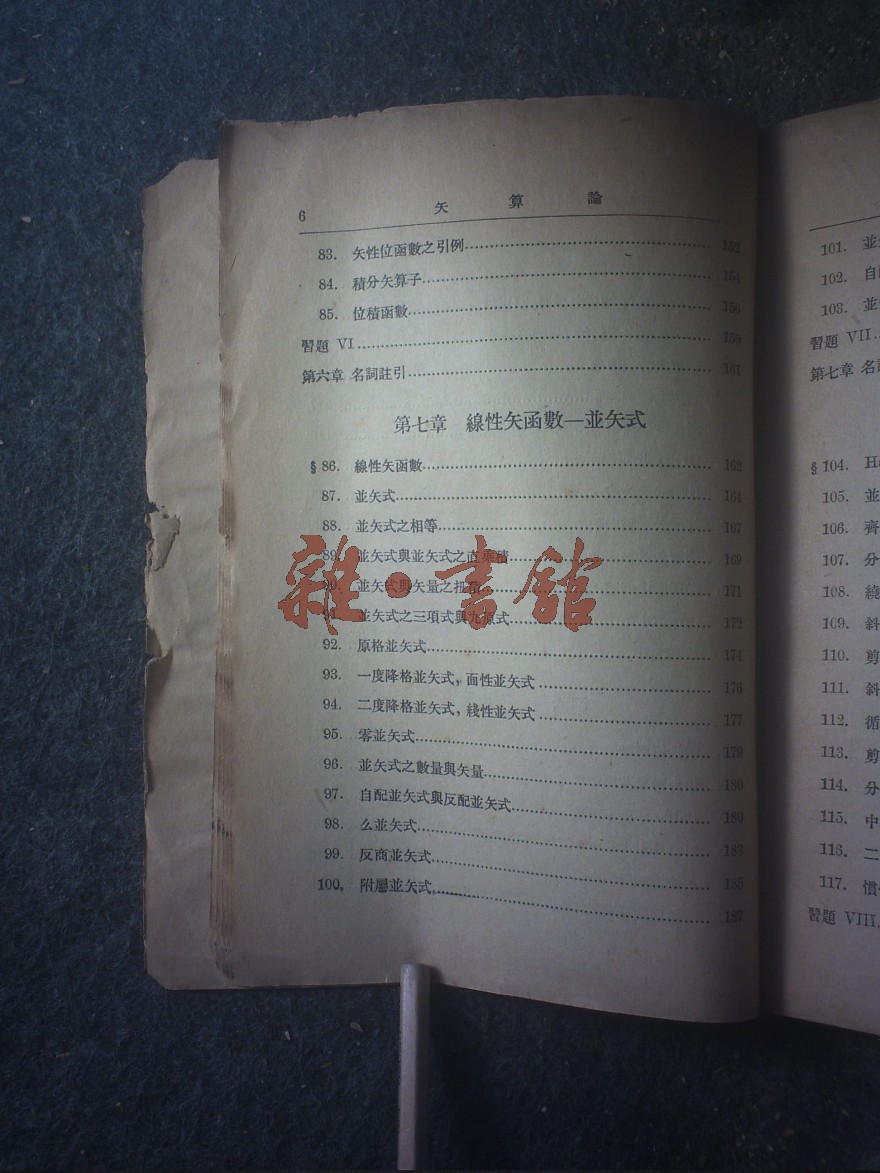 6 矢算論
83. 矢性位函數之引例 152
84. 積分矢算子 154
85. 位積函數 156
習題 VI 159
第六章 名詞註引 161
第七章 線性矢函數—並矢式
§ 86. 線性矢函數 162
87. 並矢式 164
88. 並矢式之相等 167
89. 並矢式與並矢式之直乘積 169
90. 並矢式與矢量之扭積 171
91. 並矢式之三項式與九項式 172
92. 原格並矢式 174
93. 一度降格並矢式,面性並矢式 176
94. 二度降格並矢式,綫性並矢式 177
95. 零並矢式 179
96. 並矢式之數量與矢量 180
97. 自配並矢式與反配並矢式 180
98. 么並矢式 183
99. 反商並矢式 185
100. 附屬並矢式 187
雜·書館
101. 並
102. 自
103. 並
習題 VII
第七章 名
§ 104. H
105. 並
106. 齊
107. 分
108. 繞
109. 斜
110. 剪
111. 斜
112. 循
113. 剪
114. 分
115. 中
116. 二
117. 慣
習題 VIII